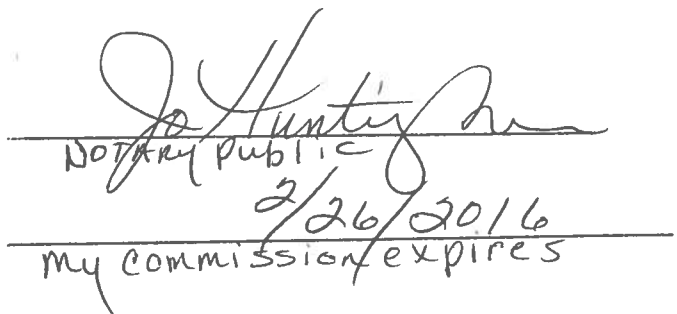 Jo Hunting
Notary Public
2/26/2016
My commission expires